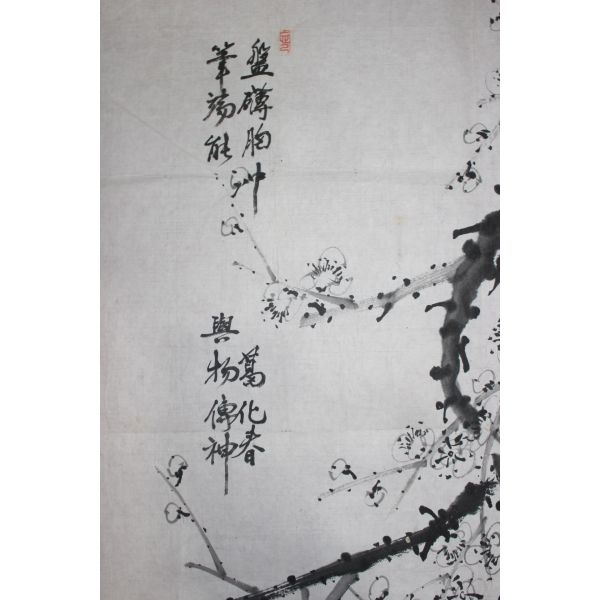 盤礴胸中
萬化春
筆端能
與物傳神